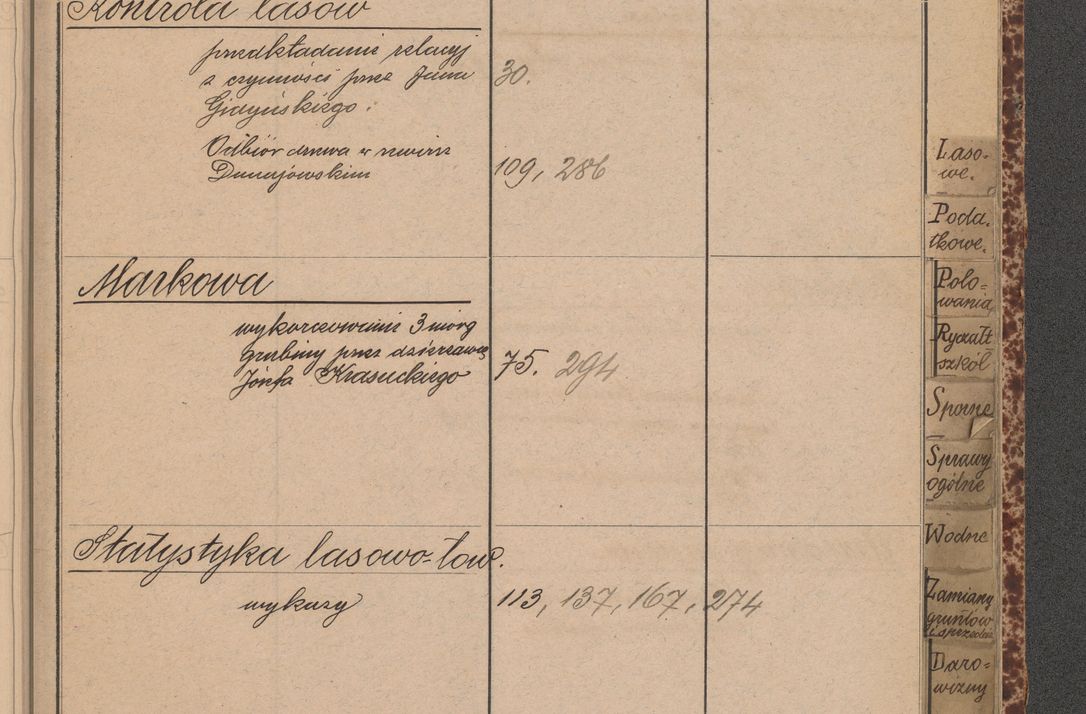 Kontrola lasów
przedkładanie relacyj
z czynności przez Jana
Giżyńskiego. 30.
Odbiór drzewa w rewirze
Dunajowskim 109, 286
Markowa
wykorzowanie 3 morg
grabiny przez dzierżawcę
Józefa Krasuckiego 75. 294
Statystyka lasowo-łow.
wykazy 113, 137, 167, 274
Laso-
we.
Poda-
tkowe.
Polo-
wania
Ryczałt
szkół
Sporne
Sprawy
ogólne
Wodne
Zamiany
gruntów
i sprzedaże
Daro-
wizny